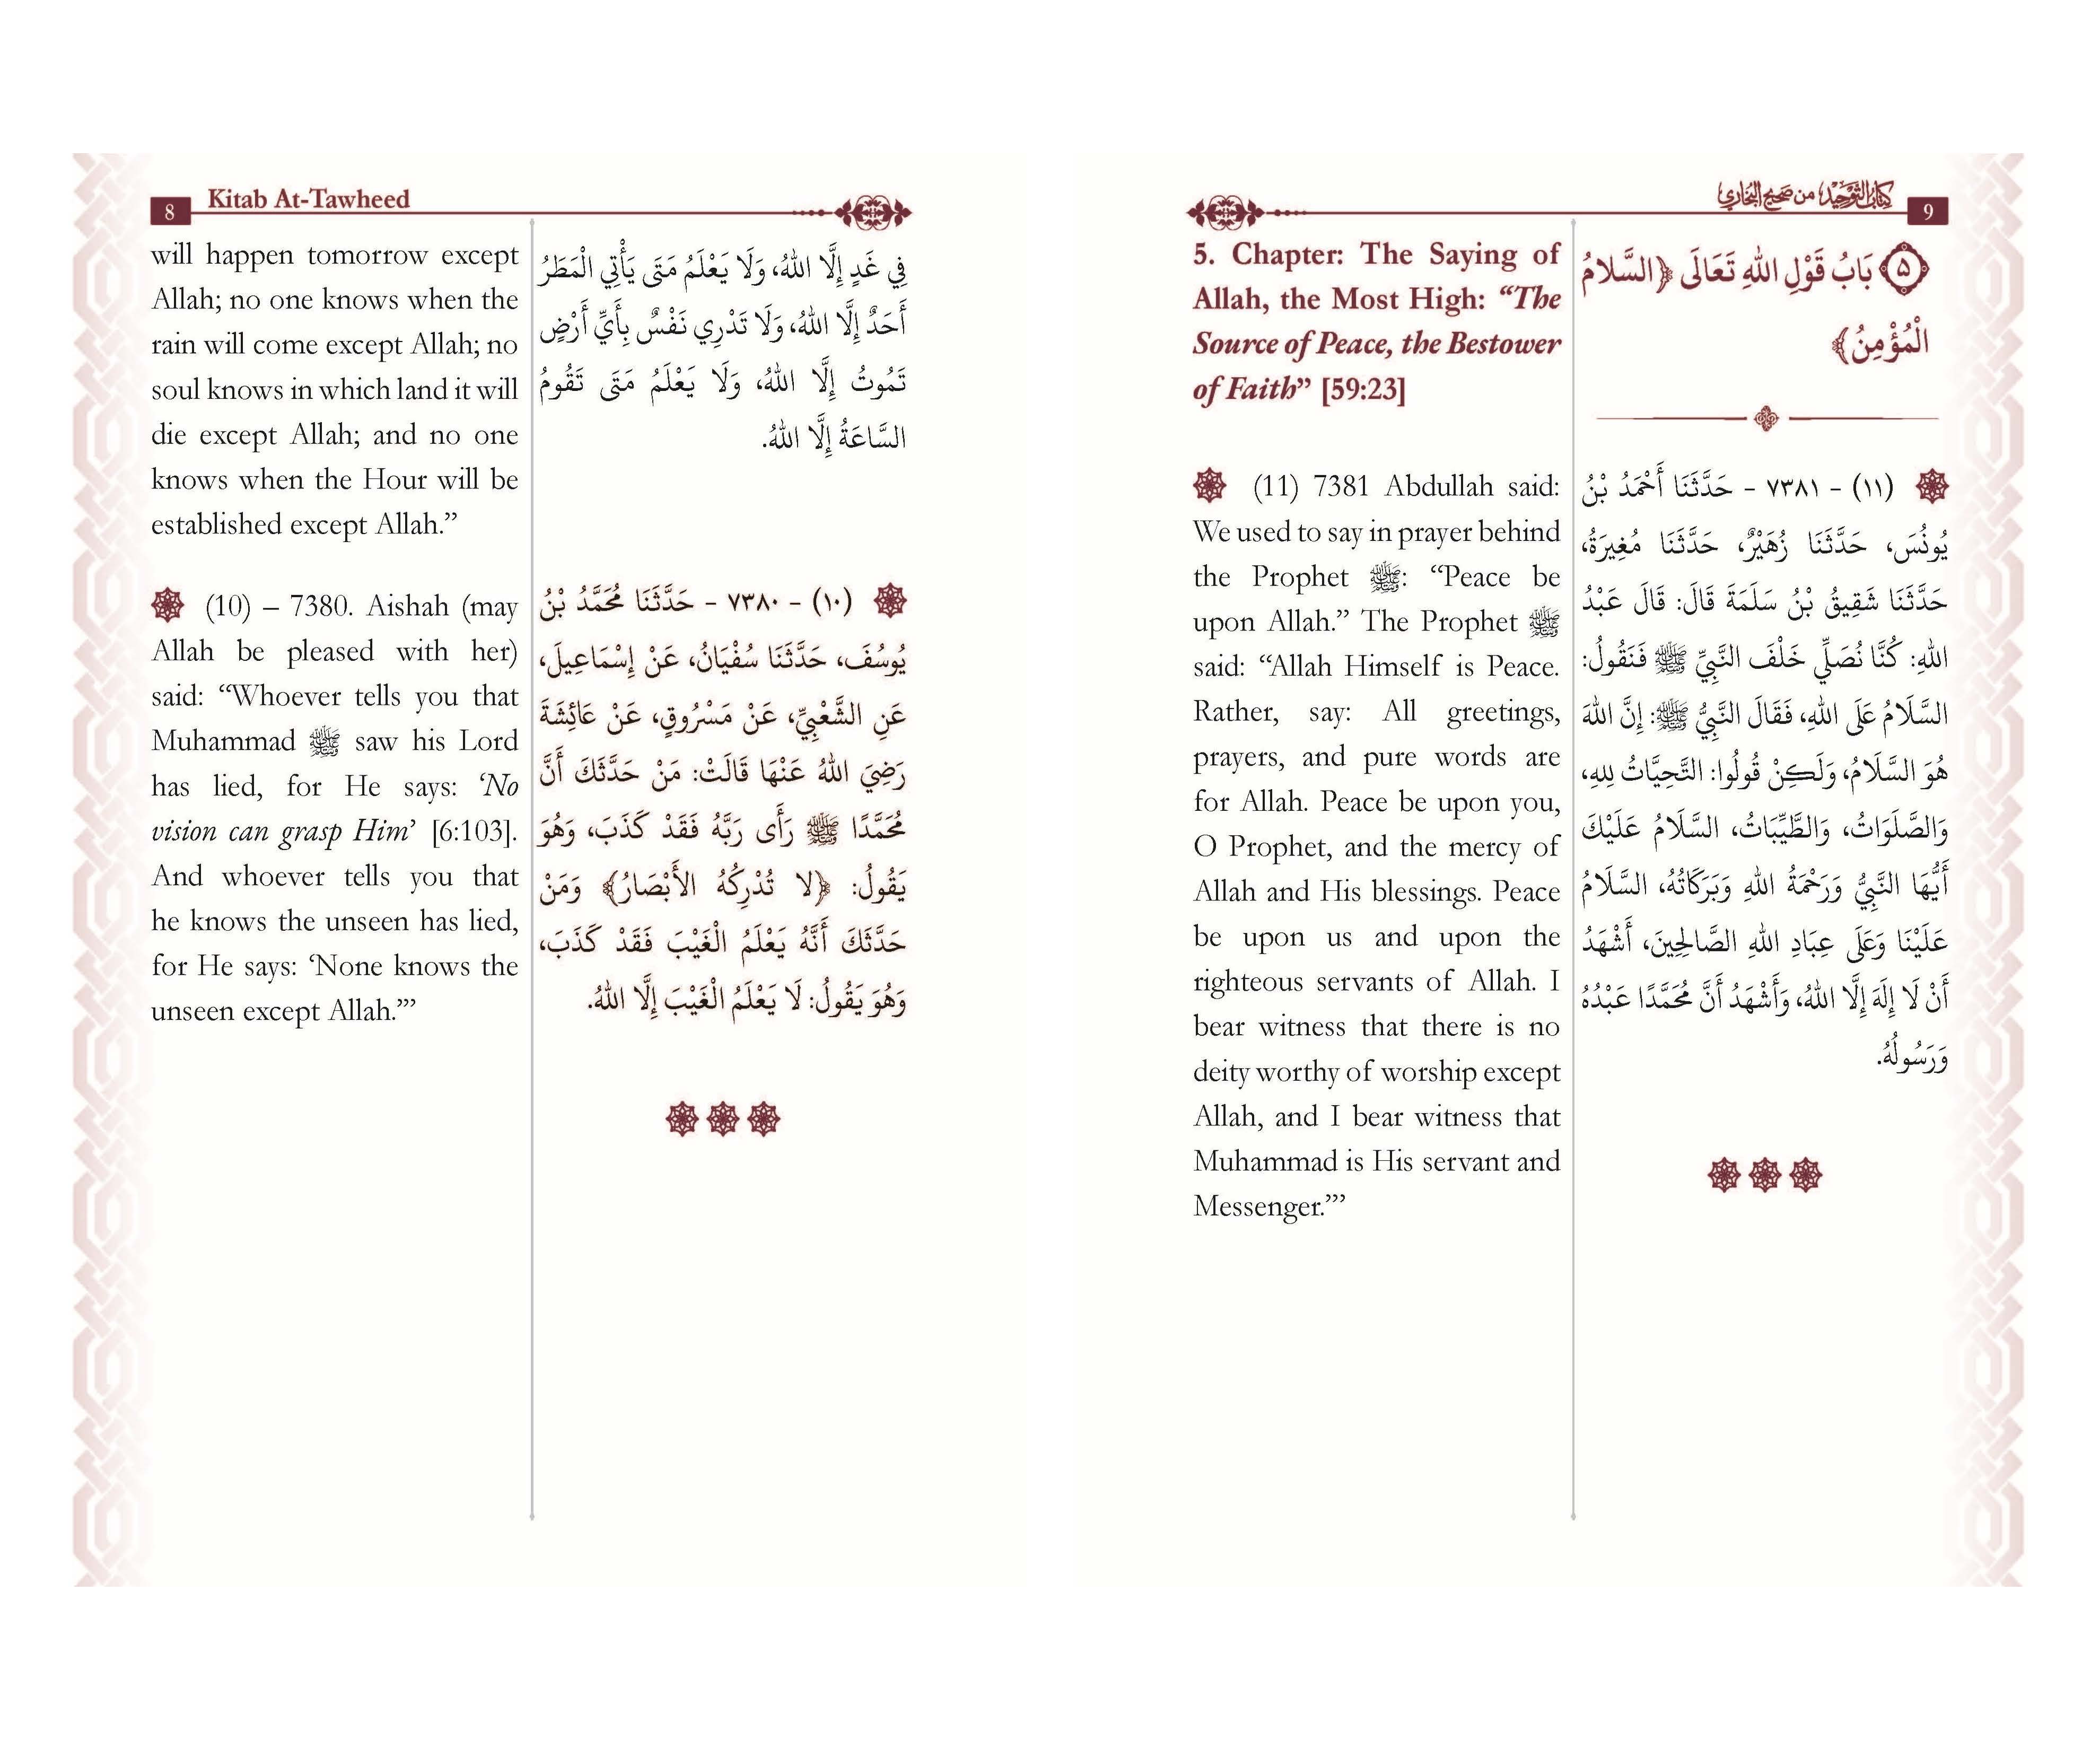 8
Kitab At-Tawheed
will happen tomorrow except
Allah; no one knows when the
rain will come except Allah; no
soul knows in which land it will
die except Allah; and no one
knows when the Hour will be
established except Allah.”
(10) – 7380. Aishah (may
Allah be pleased with her)
said: “Whoever tells you that
Muhammad ﷺ saw his Lord
has lied, for He says: ‘No
vision can grasp Him’ [6:103].
And whoever tells you that
he knows the unseen has lied,
for He says: ‘None knows the
unseen except Allah.’”
فِي غَدٍ إِلَّا اللهُ، وَلَا يَعْلَمُ مَتَى يَأْتِي الْمَطَرُ
أَحَدٌ إِلَّا اللهُ، وَلَا تَدْرِي نَفْسٌ بِأَيِّ أَرْضٍ
تَمُوتُ إِلَّا اللهُ، وَلَا يَعْلَمُ مَتَى تَقُومُ
السَّاعَةُ إِلَّا اللهُ.
(١٠) - ٧٣٨٠ - حَدَّثَنَا مُحَمَّدُ بْنُ
يُوسُفَ، حَدَّثَنَا سُفْيَانُ، عَنْ إِسْمَاعِيلَ،
عَنِ الشَّعْبِيِّ، عَنْ مَسْرُوقٍ، عَنْ عَائِشَةَ
رَضِيَ اللهُ عَنْهَا قَالَتْ: مَنْ حَدَّثَكَ أَنَّ
مُحَمَّدًا ﷺ رَأَى رَبَّهُ فَقَدْ كَذَبَ، وَهُوَ
يَقُولُ: ﴿لا تُدْرِكُهُ الأَبْصَارُ﴾ وَمَنْ
حَدَّثَكَ أَنَّهُ يَعْلَمُ الْغَيْبَ فَقَدْ كَذَبَ،
وَهُوَ يَقُولُ: لَا يَعْلَمُ الْغَيْبَ إِلَّا اللهُ.
كتاب التوحيد من صحيح البخاري
9
5. Chapter: The Saying of
Allah, the Most High: “The
Source of Peace, the Bestower
of Faith” [59:23]
(11) 7381 Abdullah said:
We used to say in prayer behind
the Prophet ﷺ: “Peace be
upon Allah.” The Prophet ﷺ
said: “Allah Himself is Peace.
Rather, say: All greetings,
prayers, and pure words are
for Allah. Peace be upon you,
O Prophet, and the mercy of
Allah and His blessings. Peace
be upon us and upon the
righteous servants of Allah. I
bear witness that there is no
deity worthy of worship except
Allah, and I bear witness that
Muhammad is His servant and
Messenger.’”
٥ بَابُ قَوْلِ اللهِ تَعَالَى ﴿السَّلامُ
الْمُؤْمِنُ﴾
(١١) - ٧٣٨١ - حَدَّثَنَا أَحْمَدُ بْنُ
يُونُسَ، حَدَّثَنَا زُهَيْرٌ، حَدَّثَنَا مُغِيرَةُ،
حَدَّثَنَا شَقِيقُ بْنُ سَلَمَةَ قَالَ: قَالَ عَبْدُ
اللهِ: كُنَّا نُصَلِّي خَلْفَ النَّبِيِّ ﷺ فَنَقُولُ:
السَّلَامُ عَلَى اللهِ، فَقَالَ النَّبِيُّ ﷺ: إِنَّ اللهَ
هُوَ السَّلَامُ، وَلَكِنْ قُولُوا: التَّحِيَّاتُ لِلهِ،
وَالصَّلَوَاتُ، وَالطَّيِّبَاتُ، السَّلَامُ عَلَيْكَ
أَيُّهَا النَّبِيُّ وَرَحْمَةُ اللهِ وَبَرَكَاتُهُ، السَّلَامُ
عَلَيْنَا وَعَلَى عِبَادِ اللهِ الصَّالِحِينَ، أَشْهَدُ
أَنْ لَا إِلَهَ إِلَّا اللهُ، وَأَشْهَدُ أَنَّ مُحَمَّدًا عَبْدُهُ
وَرَسُولُهُ.